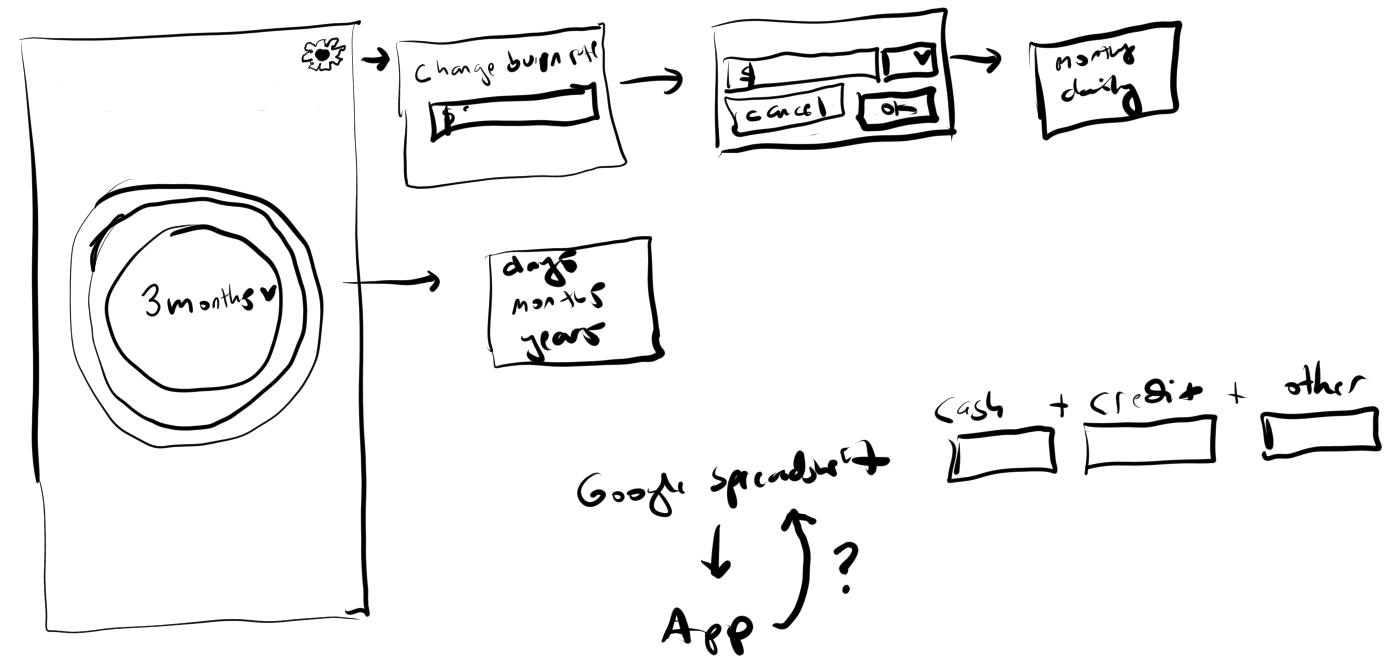 Change burn rate
$
$
cancel
OK
monthly
daily
3 months
days
months
years
cash + credit + other
Google spreadsheet
?
App